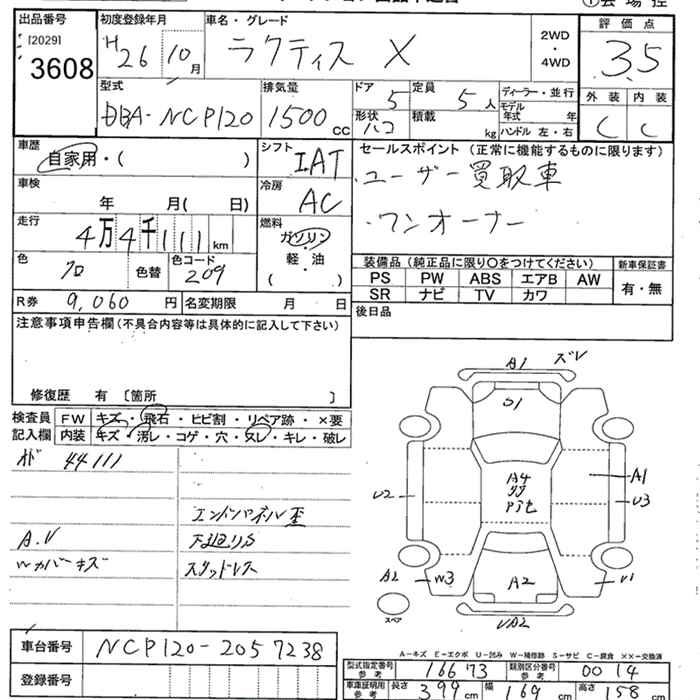 出品番号
[2029]
3608
初度登録年月
H26 10月
車名・グレード
ラクティス X
2WD
・
4WD
評価点
3.5
型式
DBA-NCP120
排気量
1500 cc
ドア
5
定員
5人
形状
ハコ
積載
kg
ディーラー・並行
モデル年式 年
ハンドル 左・右
外装 内装
C C
車歴
自家用・( )
シフト
IAT
車検
年 月( 日)
冷房
AC
走行
4万4千111km
燃料
ガソリン
・
軽・油
( )
色
クロ
色替
色コード
209
R券 9,060円
名変期限 月 日
セールスポイント(正常に機能するものに限ります)
・ユーザー買取車
・ワンオーナー
装備品(純正品に限り〇をつけてください)
新車保証書
PS PW ABS エアB AW
SR ナビ TV カワ
有・無
後日品
注意事項申告欄(不具合内容等は具体的に記入して下さい)
修復歴 有 〔箇所 〕
検査員記入欄
FW キズ・飛石・ヒビ割・リペア跡・×要
内装 キズ・汚レ・コゲ・穴・ヌレ・キレ・破レ
44111
エンドパネル歪
A.V
下廻りS
Wカバーキズ
スタッドレス
A1 ズレ
U1
A4
U2
A1
U3
A2
W3
A2
U1
スペア
UA2
A-キズ E-エクボ U-凹み W-補修跡 S-サビ C-腐食 ××-交換済
車台番号
NCP120-2057238
登録番号
型式指定番号 参考
16673
類別区分番号 参考
0014
車庫証明用 参考
長さ 399cm
幅 169cm
高さ 158cm